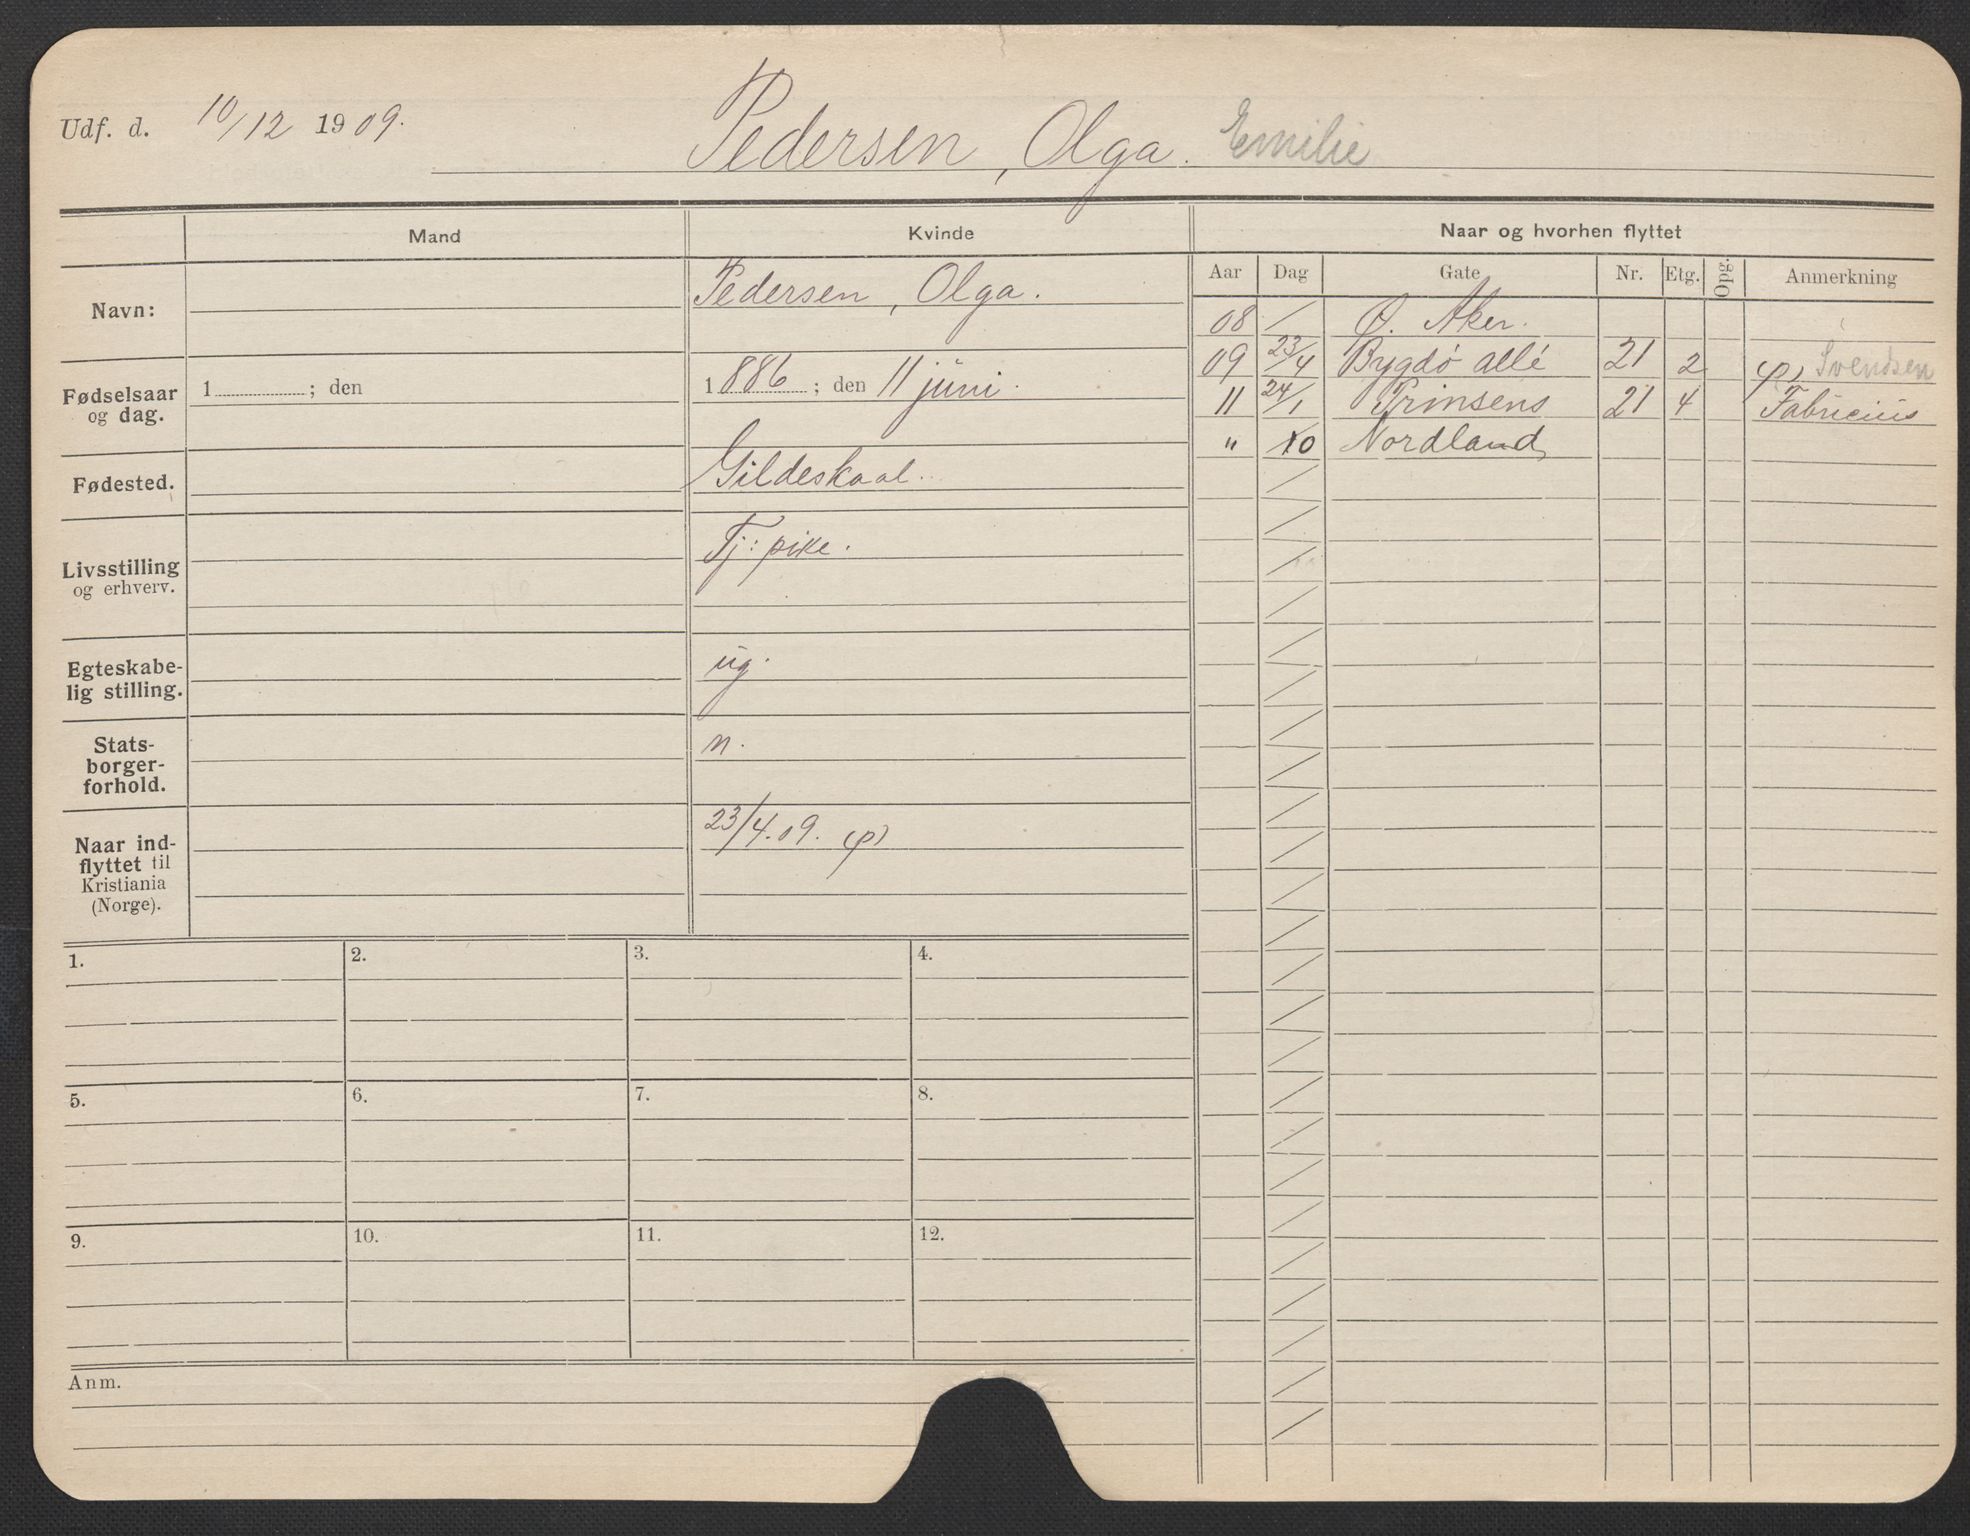 Udf. d. 10/12 1909. Pedersen, Olga. Emilie
Mand Kvinde Naar og hvorhen flyttet
Aar Dag Gate Nr. Etg. Opg. Anmerkning
Navn: Pedersen, Olga.
Fødselsaar og dag. 1 ; den 1886 ; den 11 juni.
Fødested. Gildeskaal.
Livsstilling og erhverv. Tj: pike.
Egteskabe-
lig stilling. ug.
Stats-
borger-
forhold. n.
Naar ind-
flyttet til
Kristiania
(Norge). 23/4.09. (p)
08 / Ø. Aker.
09 23/4 Bygdø allé 21 2 (p) Svendsen
11 24/1 Prinsens 21 4 Fabricius
" 10 Nordland
1. 2. 3. 4.
5. 6. 7. 8.
9. 10. 11. 12.
Anm.